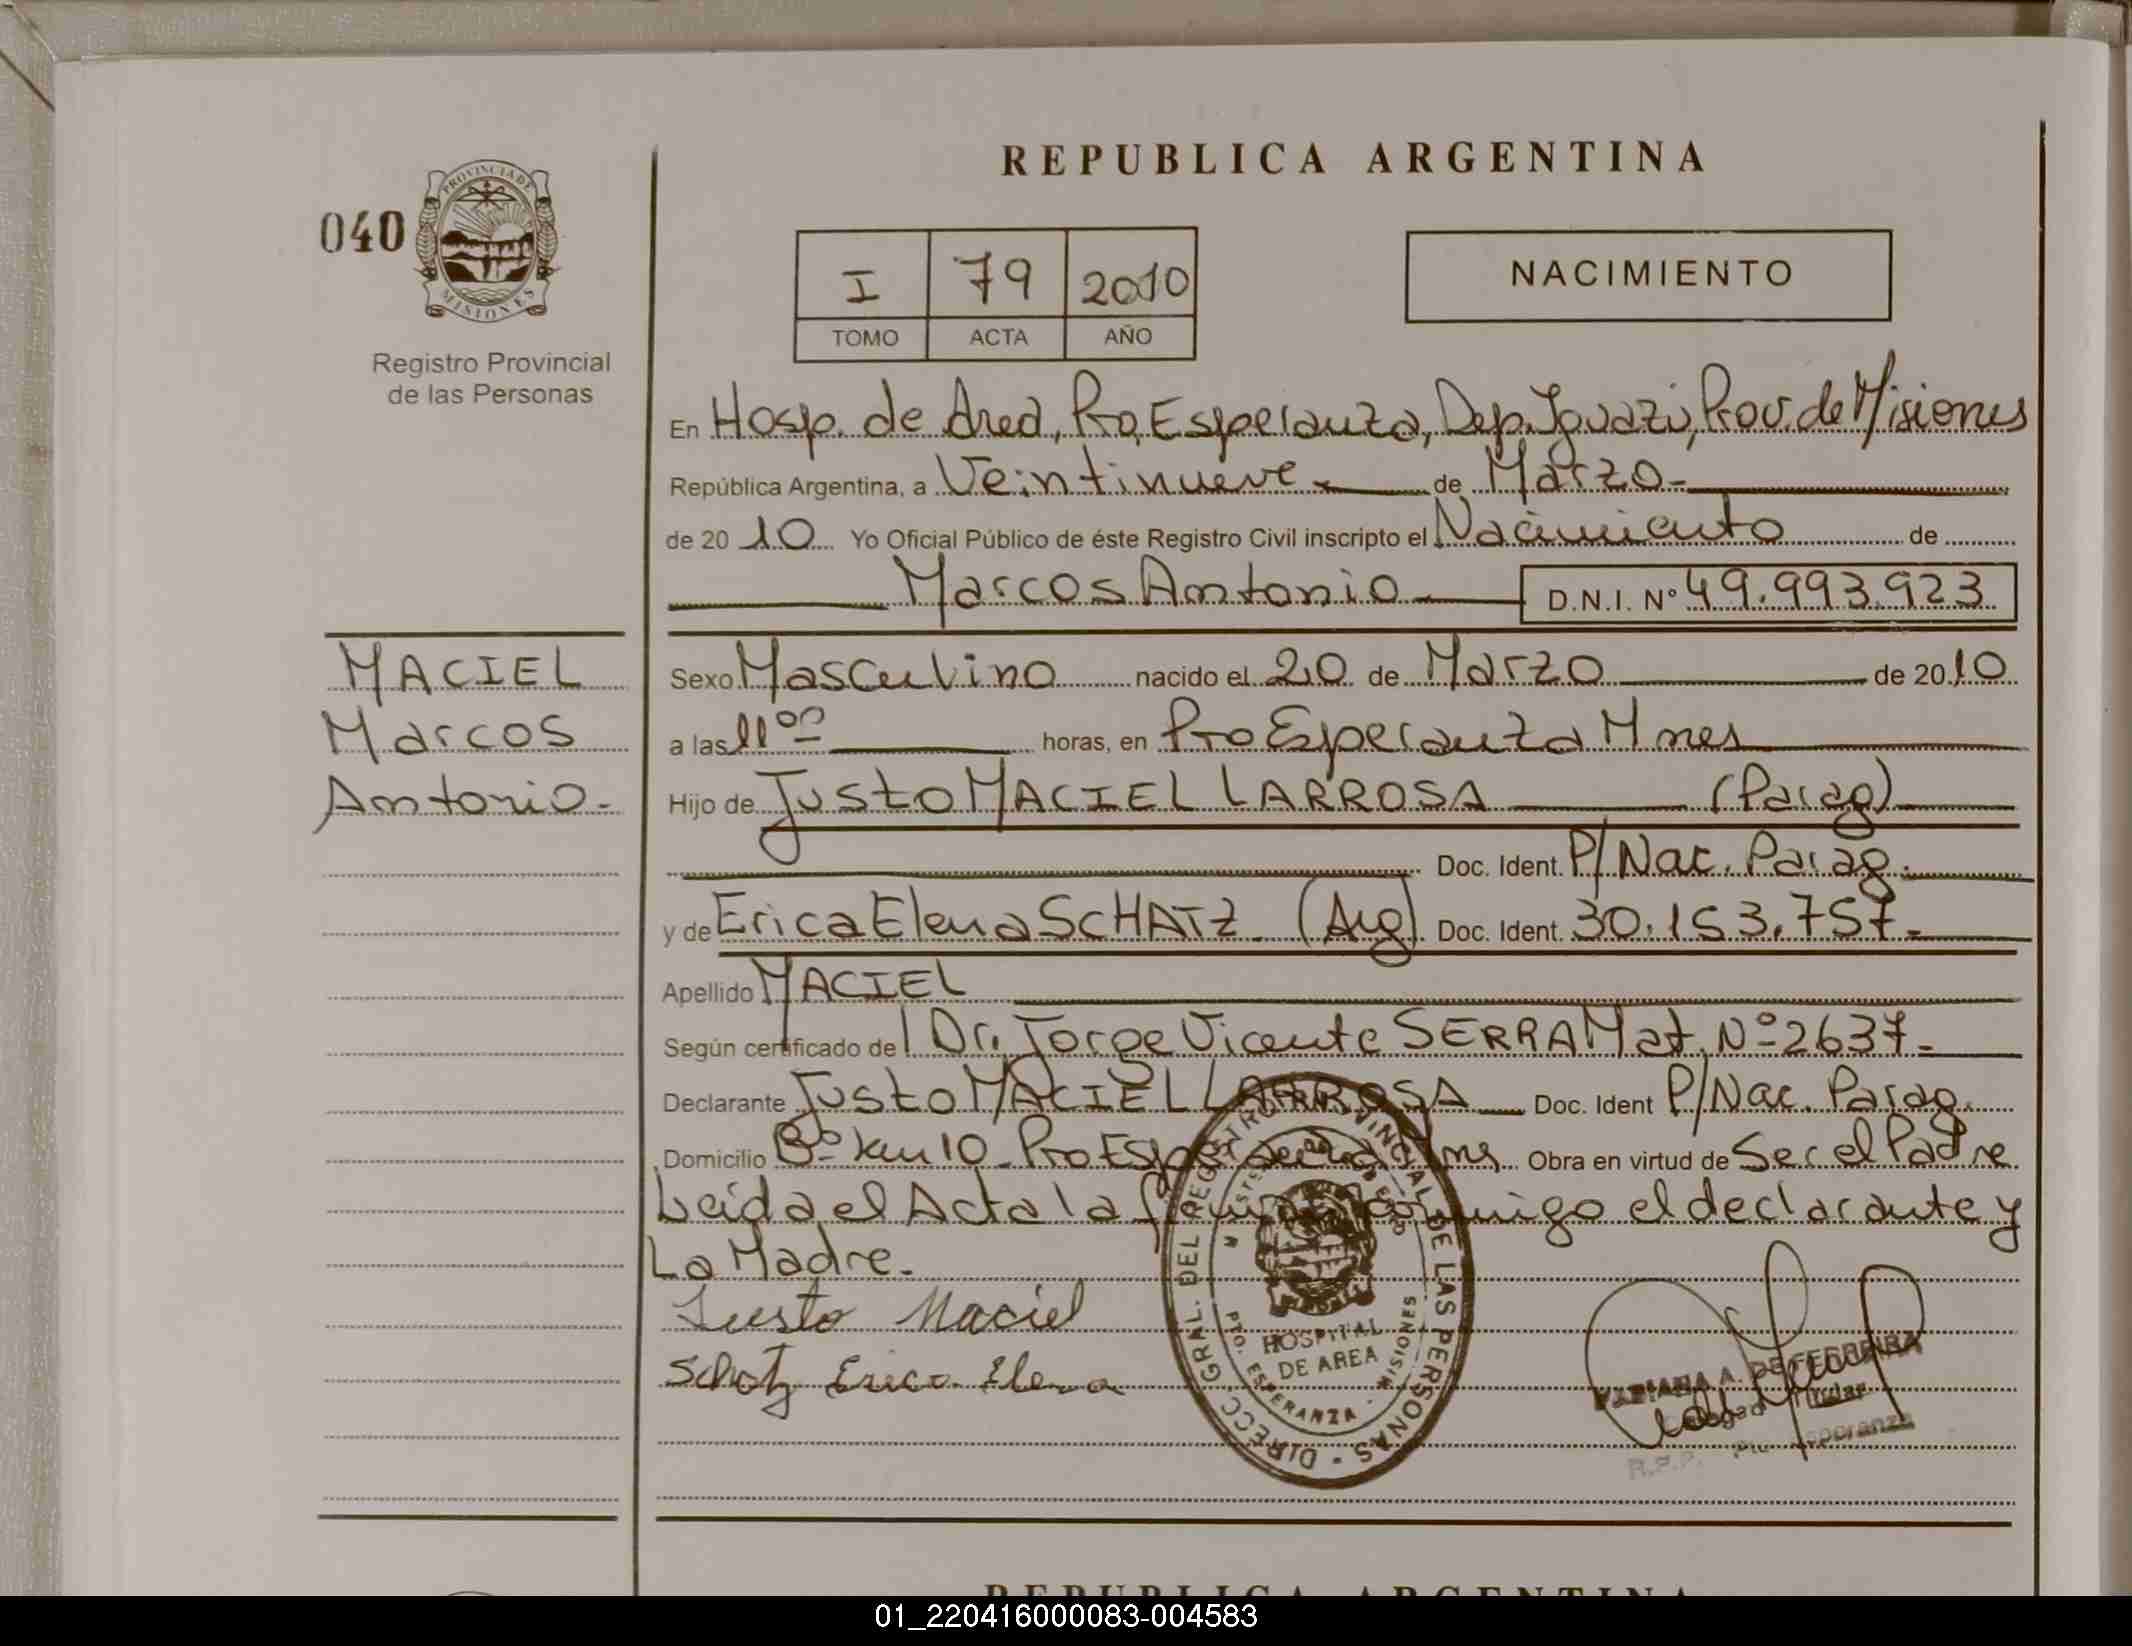 REPUBLICA ARGENTINA
040
PROVINCIA DE
MISIONES
Registro Provincial
de las Personas
I 79 2010
TOMO ACTA AÑO
NACIMIENTO
En Hosp. de Area, Pto Esperanza, Dep. Iguazú, Prov. de Misiones
República Argentina, a Veintinueve de Marzo
de 2010 Yo Oficial Público de éste Registro Civil inscripto el Nacimiento de
Marcos Antonio D.N.I. Nº 49.993.923
MACIEL
Marcos
Antonio.
Sexo Masculino nacido el 20 de Marzo de 2010
a las 11⁰⁰ horas, en Pto Esperanza Mnes
Hijo de Justo MACIEL LARROSA (Parag)
Doc. Ident. P/Nac. Parag.
y de Erica Elena SCHATZ (Arg) Doc. Ident. 30.153.757.
Apellido MACIEL
Según certificado del Dr. Jorge Vicente SERRA Mat. Nº 2637.
Declarante Justo MACIEL LARROSA Doc. Ident P/Nac. Parag.
Domicilio Bº km 10 Pto Esperanza Mns Obra en virtud de Ser el Padre
Leida el Acta la firma conmigo el declarante y
La Madre.
Justo Maciel
Schatz Erica Elena
DIRECC. GRAL. DEL REGISTRO PROVINCIAL DE LAS PERSONAS
HOSPITAL
DE AREA
PTO. ESPERANZA - MISIONES
A. DE FERREIRA
Titular
R.P.P. Pto. Esperanza
REPUBLICA ARGENTINA
01_220416000083-004583